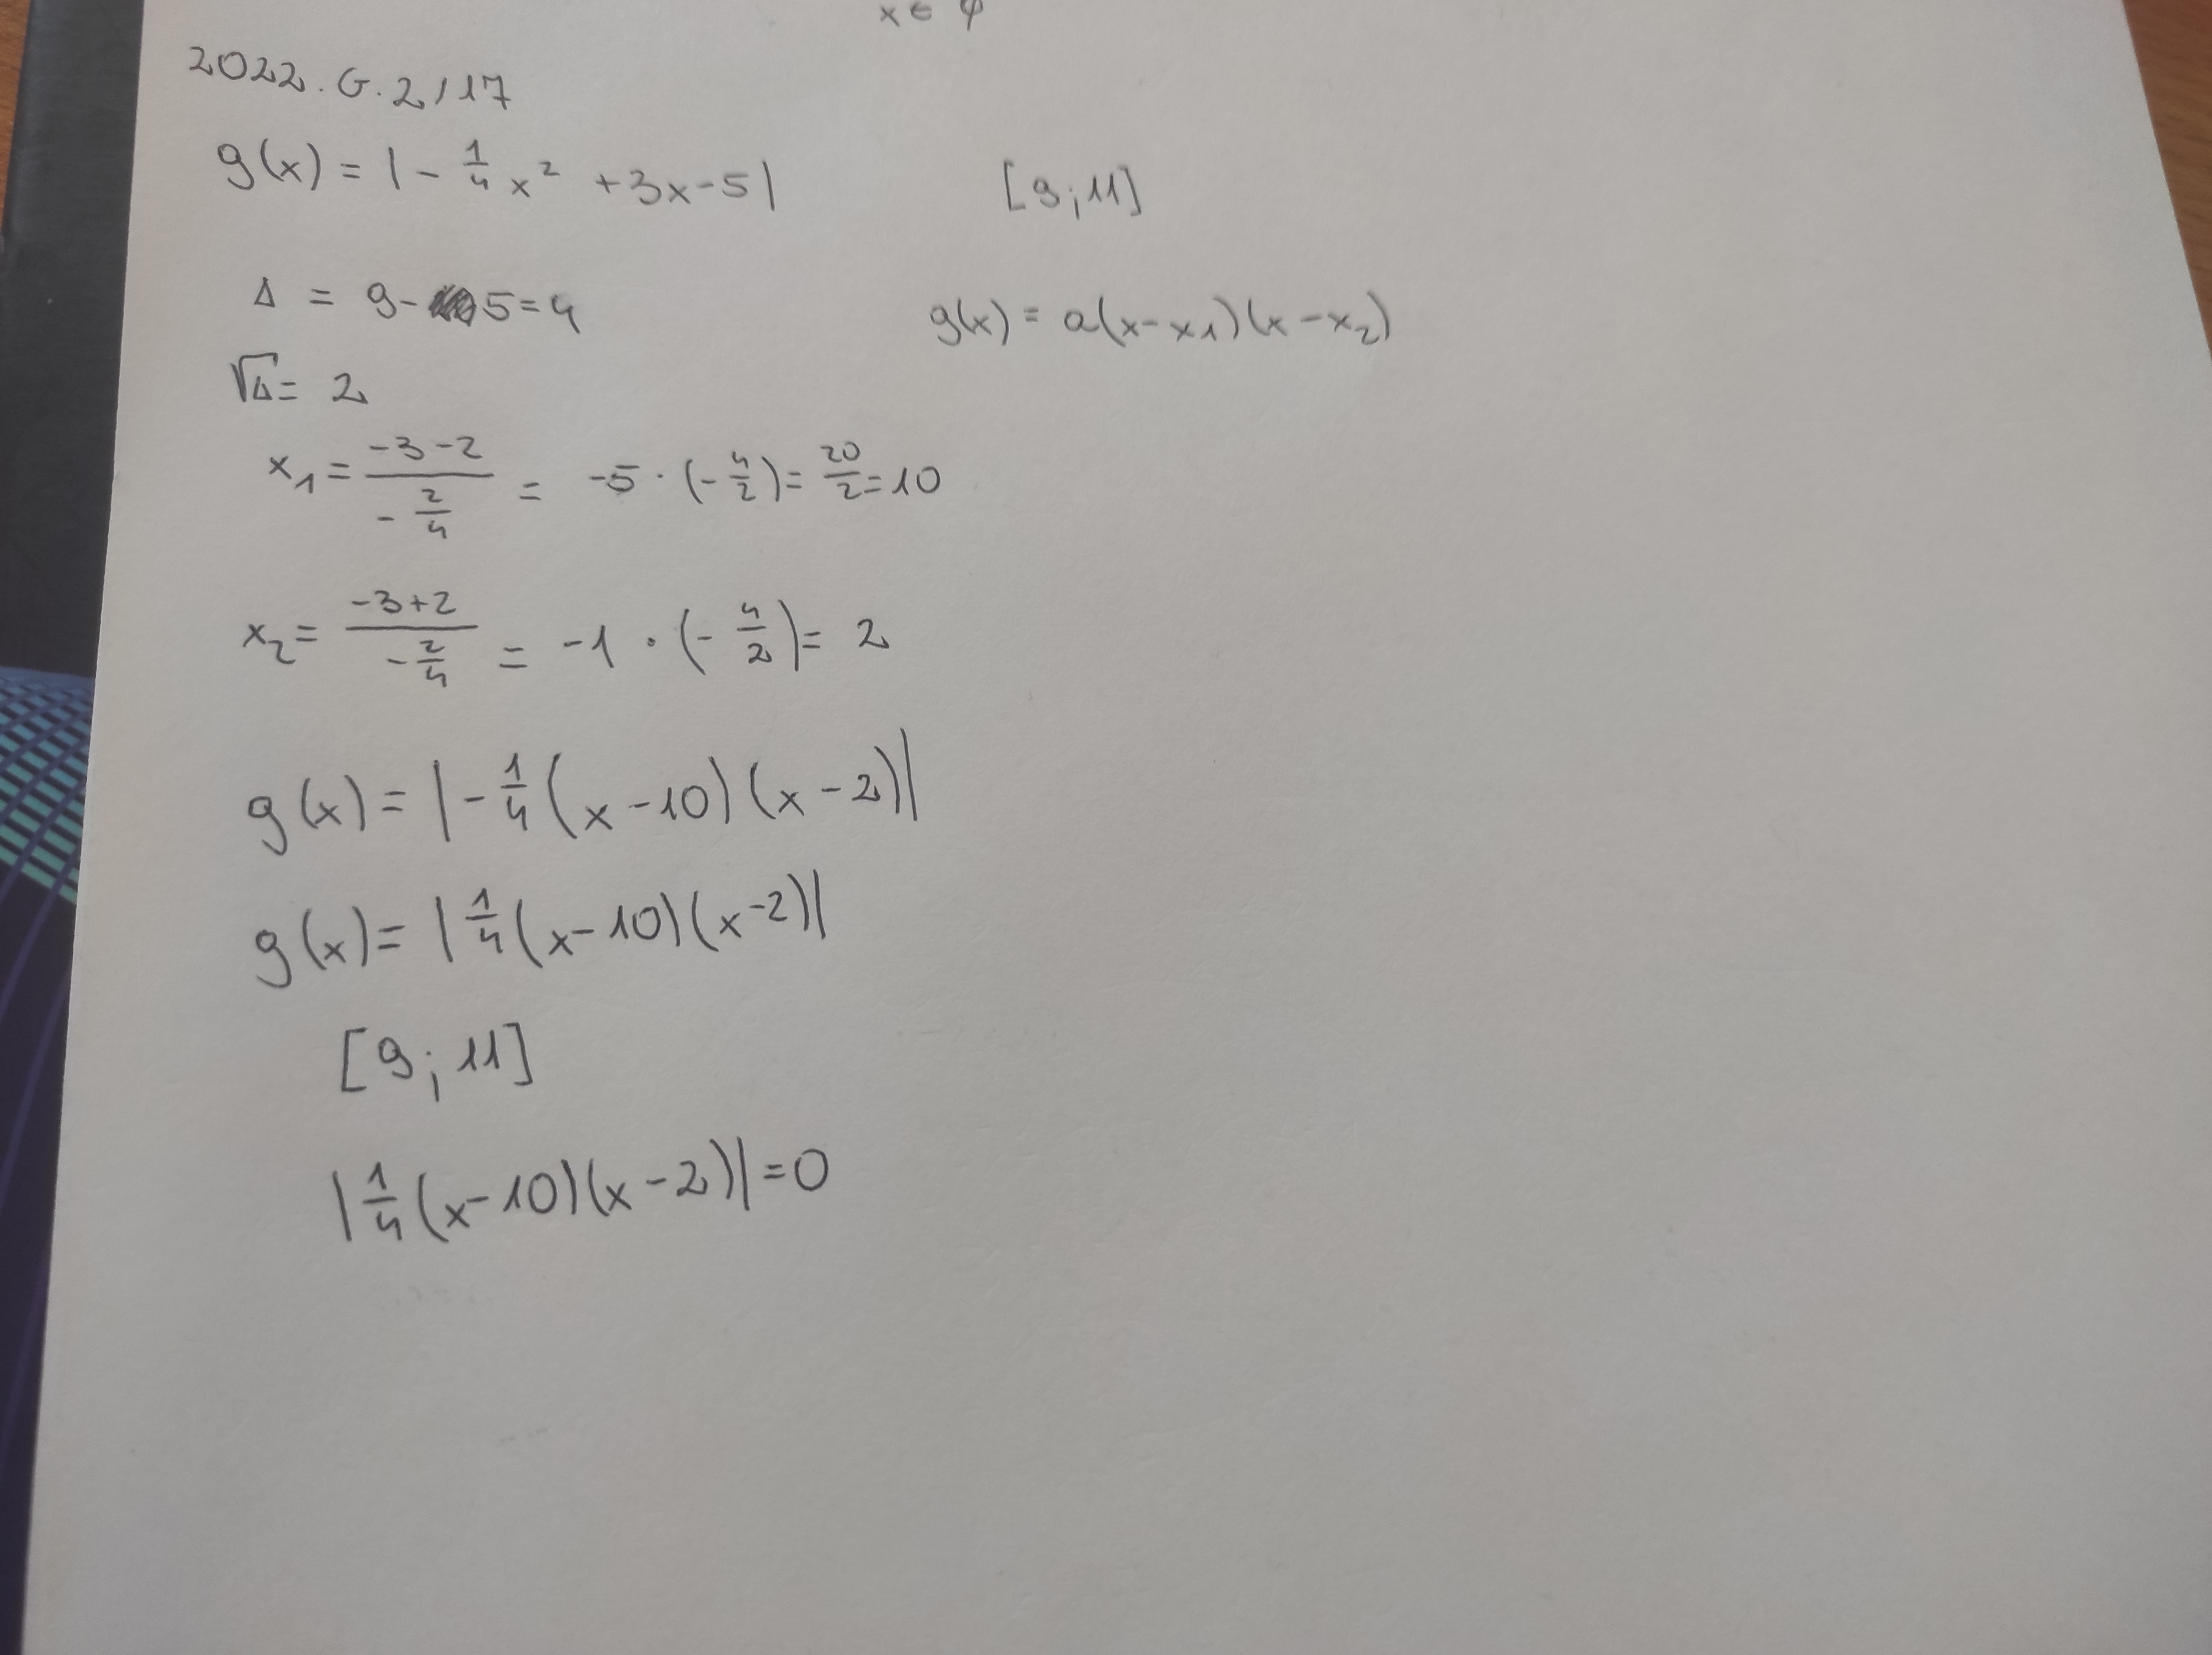 x ∈ φ
2022. G. 2/17
g(x) = |- 1/4 x² + 3x - 5| [9; 11]
Δ = 9 - 5 = 4 g(x) = a(x - x₁)(x - x₂)
√Δ = 2
x₁ = (-3 - 2)/(- 2/4) = -5 · (- 4/2) = 20/2 = 10
x₂ = (-3 + 2)/(- 2/4) = -1 · (- 4/2) = 2
g(x) = |- 1/4 (x - 10) (x - 2)|
g(x) = | 1/4 (x - 10) (x - 2)|
[9; 11]
| 1/4 (x - 10)(x - 2)| = 0